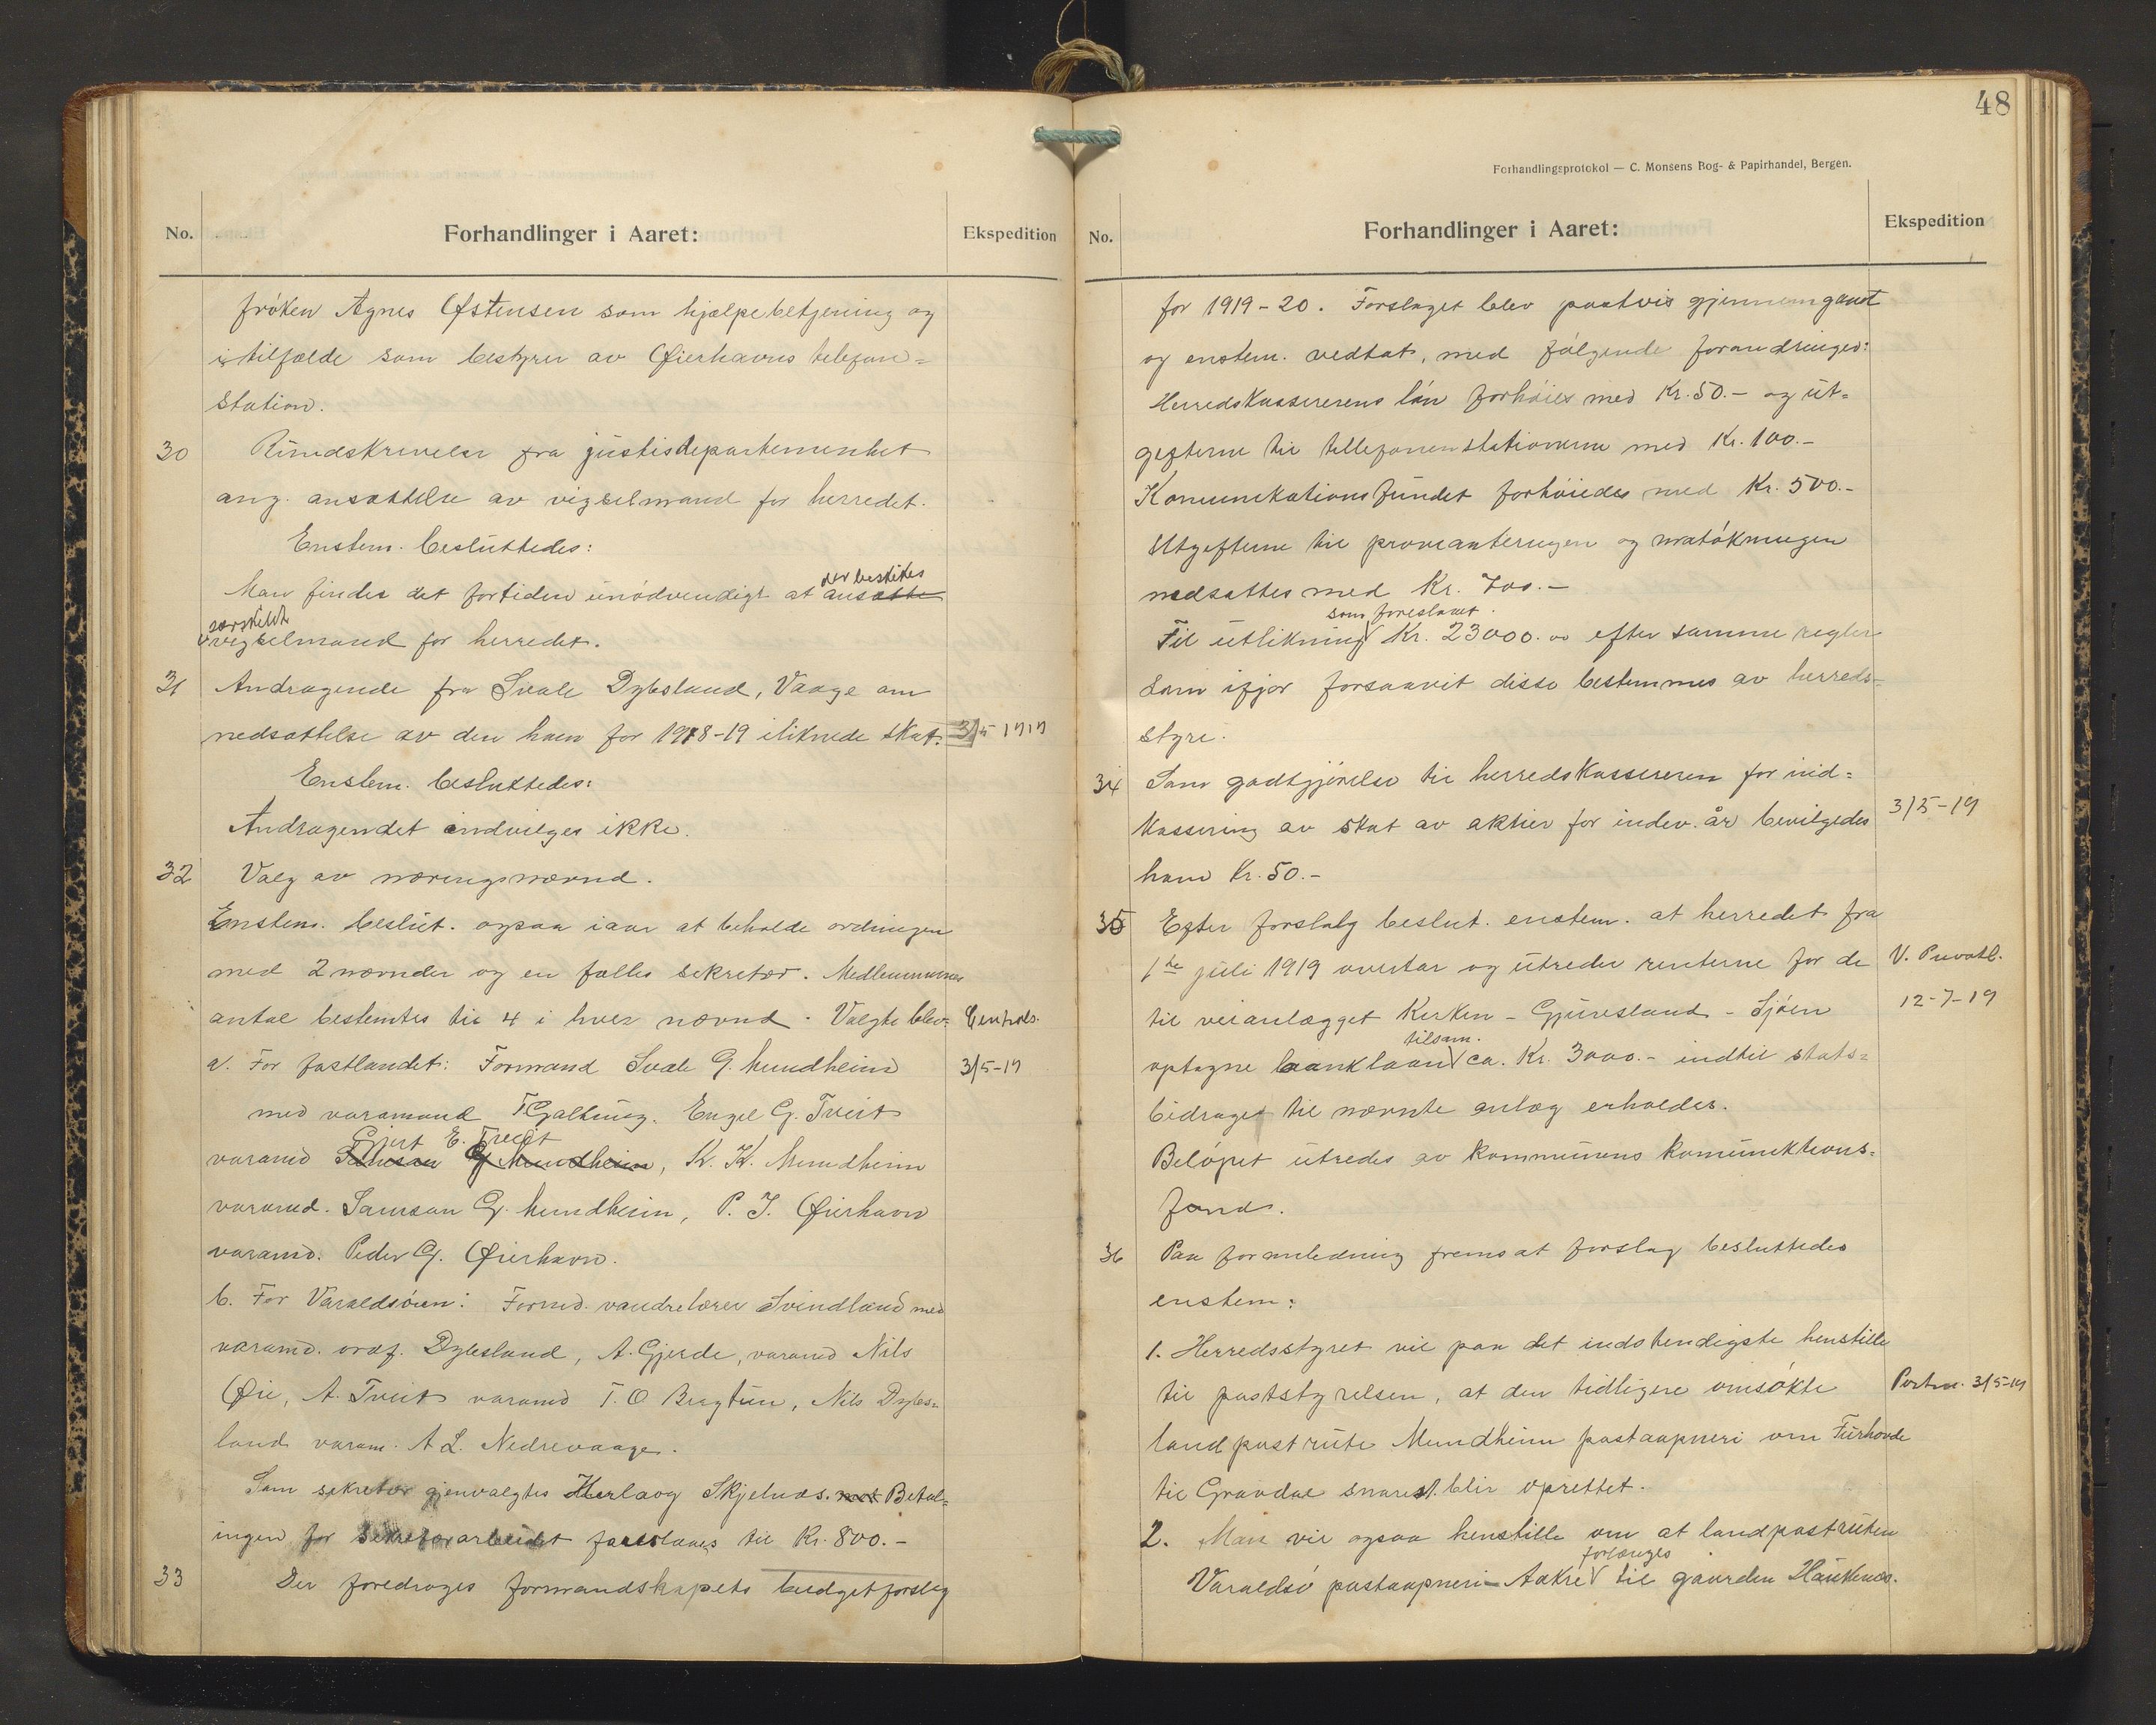 No.
Forhandlinger i Aaret:
Ekspedition
frøken Agnes Østensen som hjælpebetjening og
i tilfælde som bestyrer av Øierhavns telefon=
station.
30 Rundskrivelse fra justisdepartementet
ang. ansættelse av vigselmand for herredet.
Enstem. besluttedes:
der beskikes
Man finder det fortiden unødvendigt at ansætte
særskildt
vigselmand for herredet.
31 Andragende fra Svale Dyløsland, Vaage om
nedsættelse av den ham for 1918-19 iliknede skat. 3/5 1919
Enstem. besluttedes:
Andragendet indvilges ikke.
32 Valg av næringsnævnd.
Enstem. beslut. ogsaa iaar at beholde ordningen
med 2 nævnder og en fælles sekretær. Medlemmernes
antal bestemtes til 4 i hver nævnd. Valgte blev:
3/5-19
a. For fastlandet: Formand Svale G. Mundheim
med varamand T Galtung. Engel G. Tveit
Gjert E. Tveit
varamd Samson G Mundheim, K. K. Mundheim
varamd. Samson G. Mundheim, P. J. Øierhavn
varamd. Peder G. Øierhavn.
b. For Varaldsøen: Formd. vandrelærer Svindland med
varamd. ordf. Dyløsland, A. Gjerde, varamd Nils
Øie, A. Tveit varamd T. O Bergtun, Nils Dyløs=
land varam. A L. Nedrevaage.
Som sekretær gjenvalgtes Herlaug Skjelnæs. mot Betal=
ingen for sekretærarbeidet foreslaaes til Kr. 800.-
33 Der foredroges formandskapets budgetforslag
48
Forhandlingsprotokol — C. Monsens Bog- & Papirhandel, Bergen.
No.
Forhandlinger i Aaret:
Ekspedition
for 1919-20. Forslaget blev postvis gjennemgaaet
og enstem. vedtat, med følgende forandringer:
Herredskassererens løn forhøies med Kr. 50.- og ut=
gifterne til tellefonenstationerne med Kr. 100.-
Komunikationsfundet forhøiedes med Kr. 500.-
Utgifterne til provianteringen og matøkningen
nedsattes med Kr. 700.-
som foreslaaet.
Til utlikning Kr. 23000.00 efter samme regler
som ifjor forsaavit disse bestemmes av herreds=
styre.
34 Som godtgjørelse til herredskassereren for ind=
kassering av skat av aktier for indev. år bevilgedes 3/5-19
ham Kr. 50.-
35 Efter forslag beslut. enstem. at herredet fra
1ste juli 1919 overtar og utreder renterne for de
12-7-19
til veianlægget Kirken - Gjuvsland - Sjøen
tilsam.
optagne banklaan ca. Kr. 3000.- indtil stats=
bidraget til nævnte anlæg erholdes.
Beløpet utredes av kommunens komuniktions=
fond.
36 Paa formeledning fremsat forslag besluttedes
enstem:
1. Herredsstyret vil paa det indstendigste henstille
til poststyrelsen, at den tidligere omsøkte 3/5-19
landpostrute Mundheim postaapneri om Furhovde
til Gravdal snarest blir oprettet.
2. Man vil ogsaa henstille om at landpostruten
forlænges
Varaldsø postaapneri - Aakre til gaarden Haukenæs.